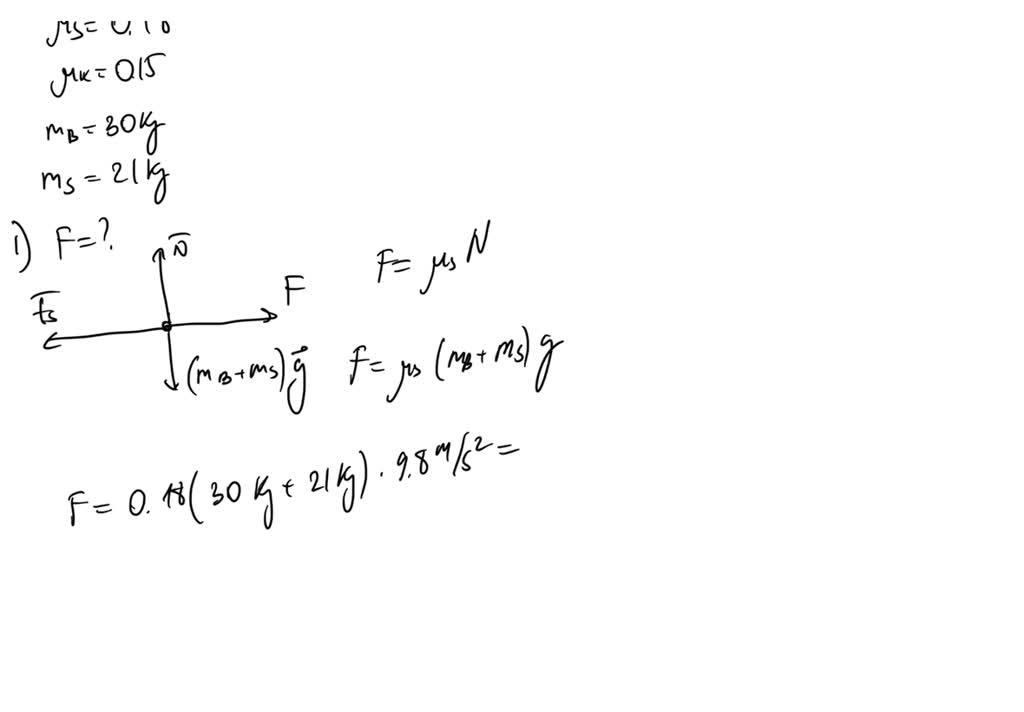 μₖ = 0.15
m_B = 30 kg
m_S = 21 kg
1) F = ?
N
F = μₛ N
F
fₛ
(m_B + m_S) g⃗
F = μₛ (m_B + m_S) g
F = 0.18 (30 kg + 21 kg) · 9.8 m/s² =